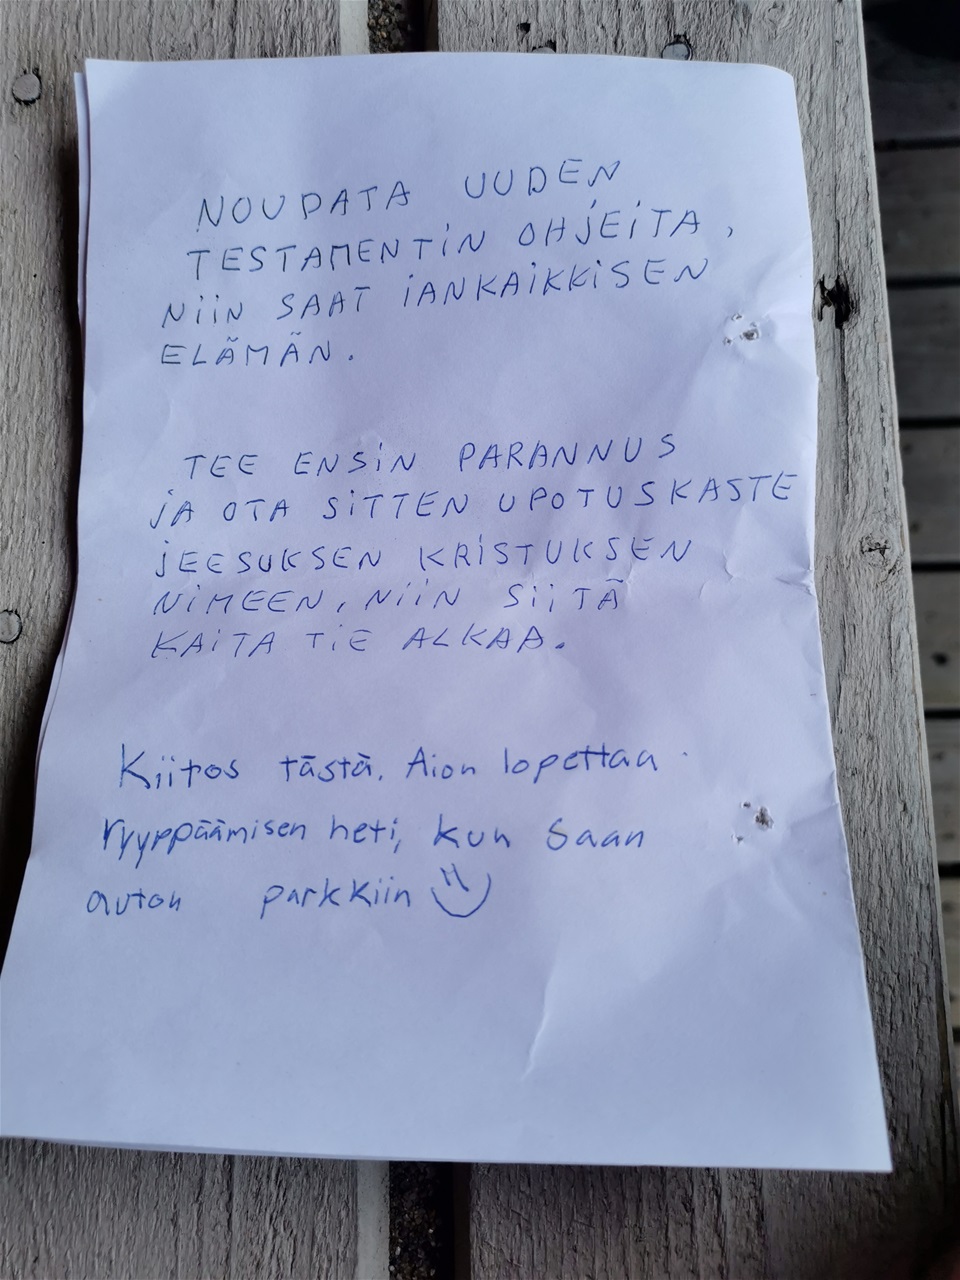 NOUDATA UUDEN
TESTAMENTIN OHJEITA,
NIIN SAAT IANKAIKKISEN
ELÄMÄN.
TEE ENSIN PARANNUS
JA OTA SITTEN UPOTUSKASTE
JEESUKSEN KRISTUKSEN
NIMEEN, NIIN SIITÄ
KAITA TIE ALKAA.
Kiitos tästä. Aion lopettaa
ryyppäämisen heti, kun saan
auton parkkiin